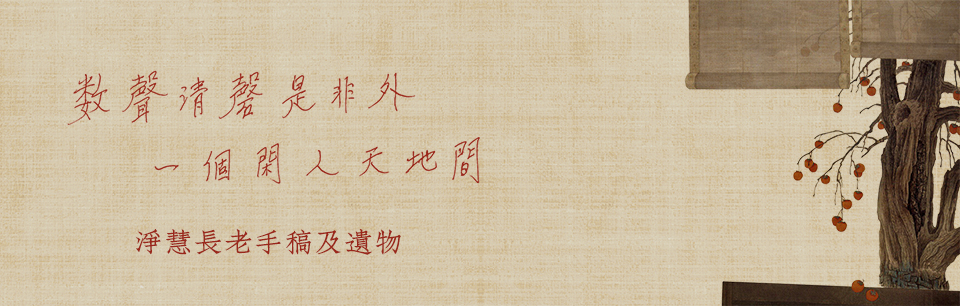 数聲清磬是非外
一個閑人天地間
淨慧長老手稿及遺物